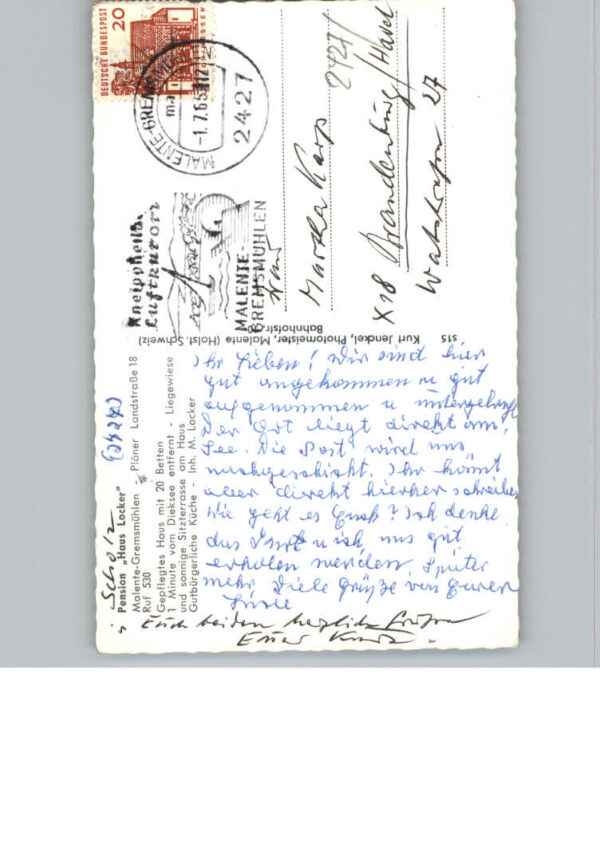 Scholz
Pension „Haus Locker"
Malente-Gremsmühlen Plöner Landstraße 18
Ruf 530
Gepflegtes Haus mit 20 Betten
1 Minute vom Dieksee entfernt - Liegewiese
und sonnige Sitzterrasse am Haus
Gutbürgerliche Küche - Inh. M. Locker
Ihr Lieben! Wir sind hier
gut angekommen u gut
aufgenommen u untergebracht
Der Ort liegt direkt am
See. Die Post wird uns
nachgeschickt. Ihr könnt
aber direkt hierher schreiben
Wie geht es Euch? Ich denke
das Kurt u ich uns gut
erholen werden. Später
mehr. Viele Grüße von Eurer
Euch beiden herzliche Grüße
Euer Kurt
S15
Kurt Jenckel, Photomeister, Malente (Holst. Schweiz)
Bahnhofstr.
DEUTSCHE BUNDESPOST
20
MALENTE-GREMSMÜHLEN
-1.7.65
2427
Kneippheilb.
Luftkurort
MALENTE-
GREMSMÜHLEN
2427
X18 Brandenburg/Havel
27